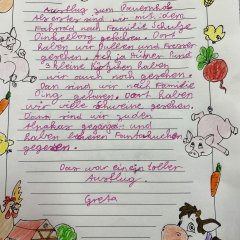 Ausflug zum Bauernhof
Als erster sind wir mit dem
Fahrrad nach Familie Schulze
gefahren. Dort
haben wir Bullen und
gesehen. Auch Hühner und
3 kleine Kätzchen haben
wir auch noch gesehen.
Dan sind wir nach Familie
Oing gefahren. Dort haben
wir viele Schweine gesehen.
Dann sind wir zu den
Alpakas gegangen und
haben leckeren
gegessen.
Das war ein toller
Ausflug.
Greta